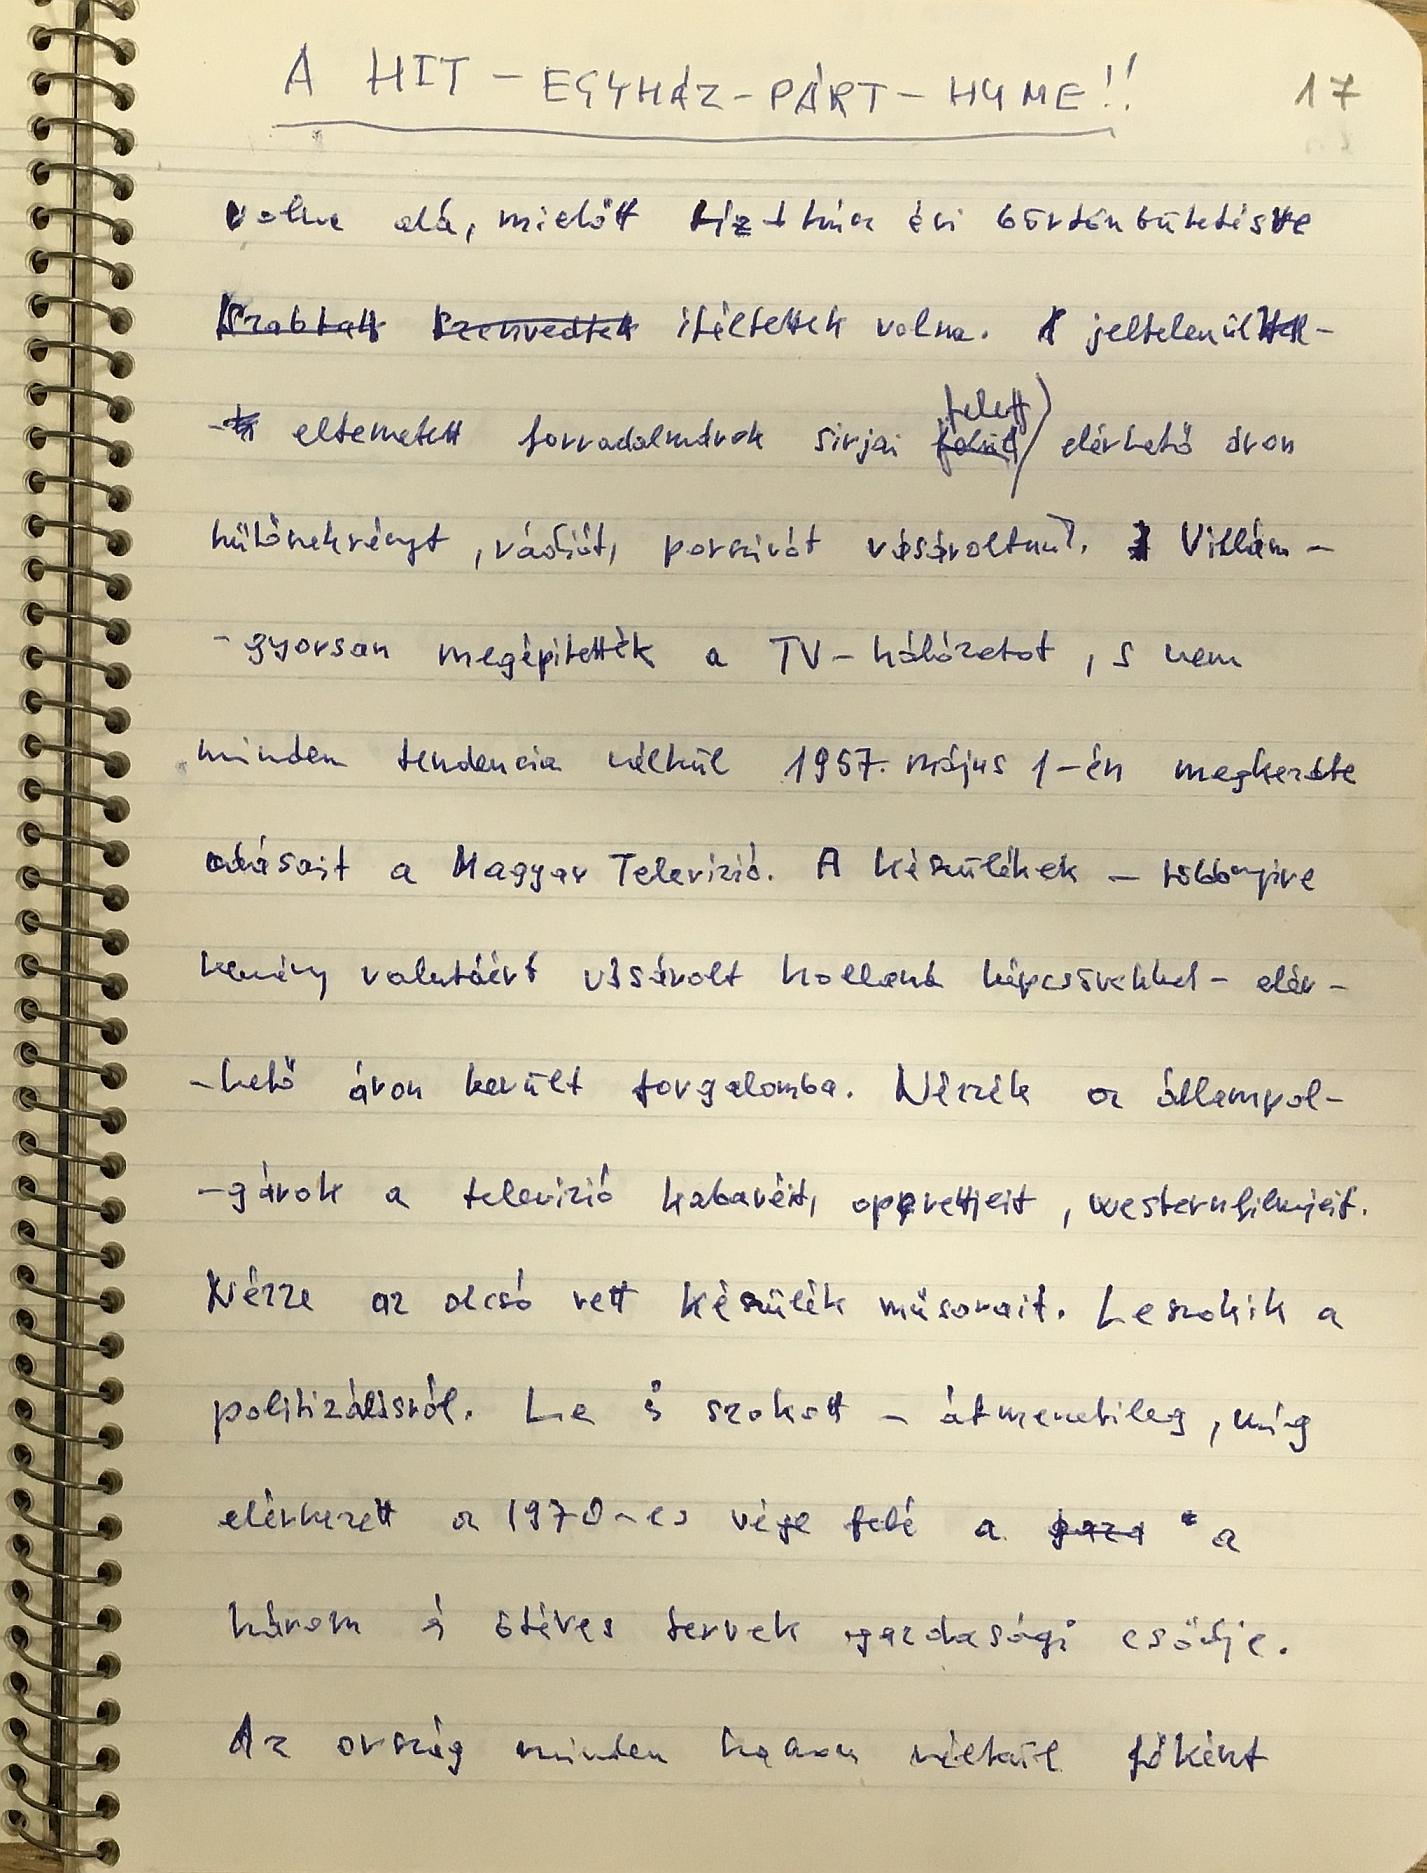 A HIT - EGYHÁZ - PÁRT - HYME!! 17
volna alá, mielőtt tíz + húsz évi börtönbüntetésre
Szabtak Szenvedtek ítéltettek volna. A jeltelenül
eltemetett forradalmárok sirjai felett elérhető áron
hűtőszekrényt, rádiót, porszívót vásároltunk. Villám-
-gyorsan megépítették a TV-hálózatot, s nem
minden tendencia nélkül 1957. május 1-én megkezdte
adásait a Magyar Televízió. A készülékek - többnyire
kemény valutáért vásárolt holland képcsövekkel - elér-
-hető áron került forgalomba. Nézzék az állampol-
-gárok a televízió kabaréit, operettjeit, westernfilmjeit.
Nézze az olcsó vett készülék műsorait. Leszokik a
politizálásról. Le is szokott - átmenetileg, míg
elérkezett a 1970-es vége felé a a
három és ötéves tervek gazdasági csődje.
Az ország minden haszon nélkül főként